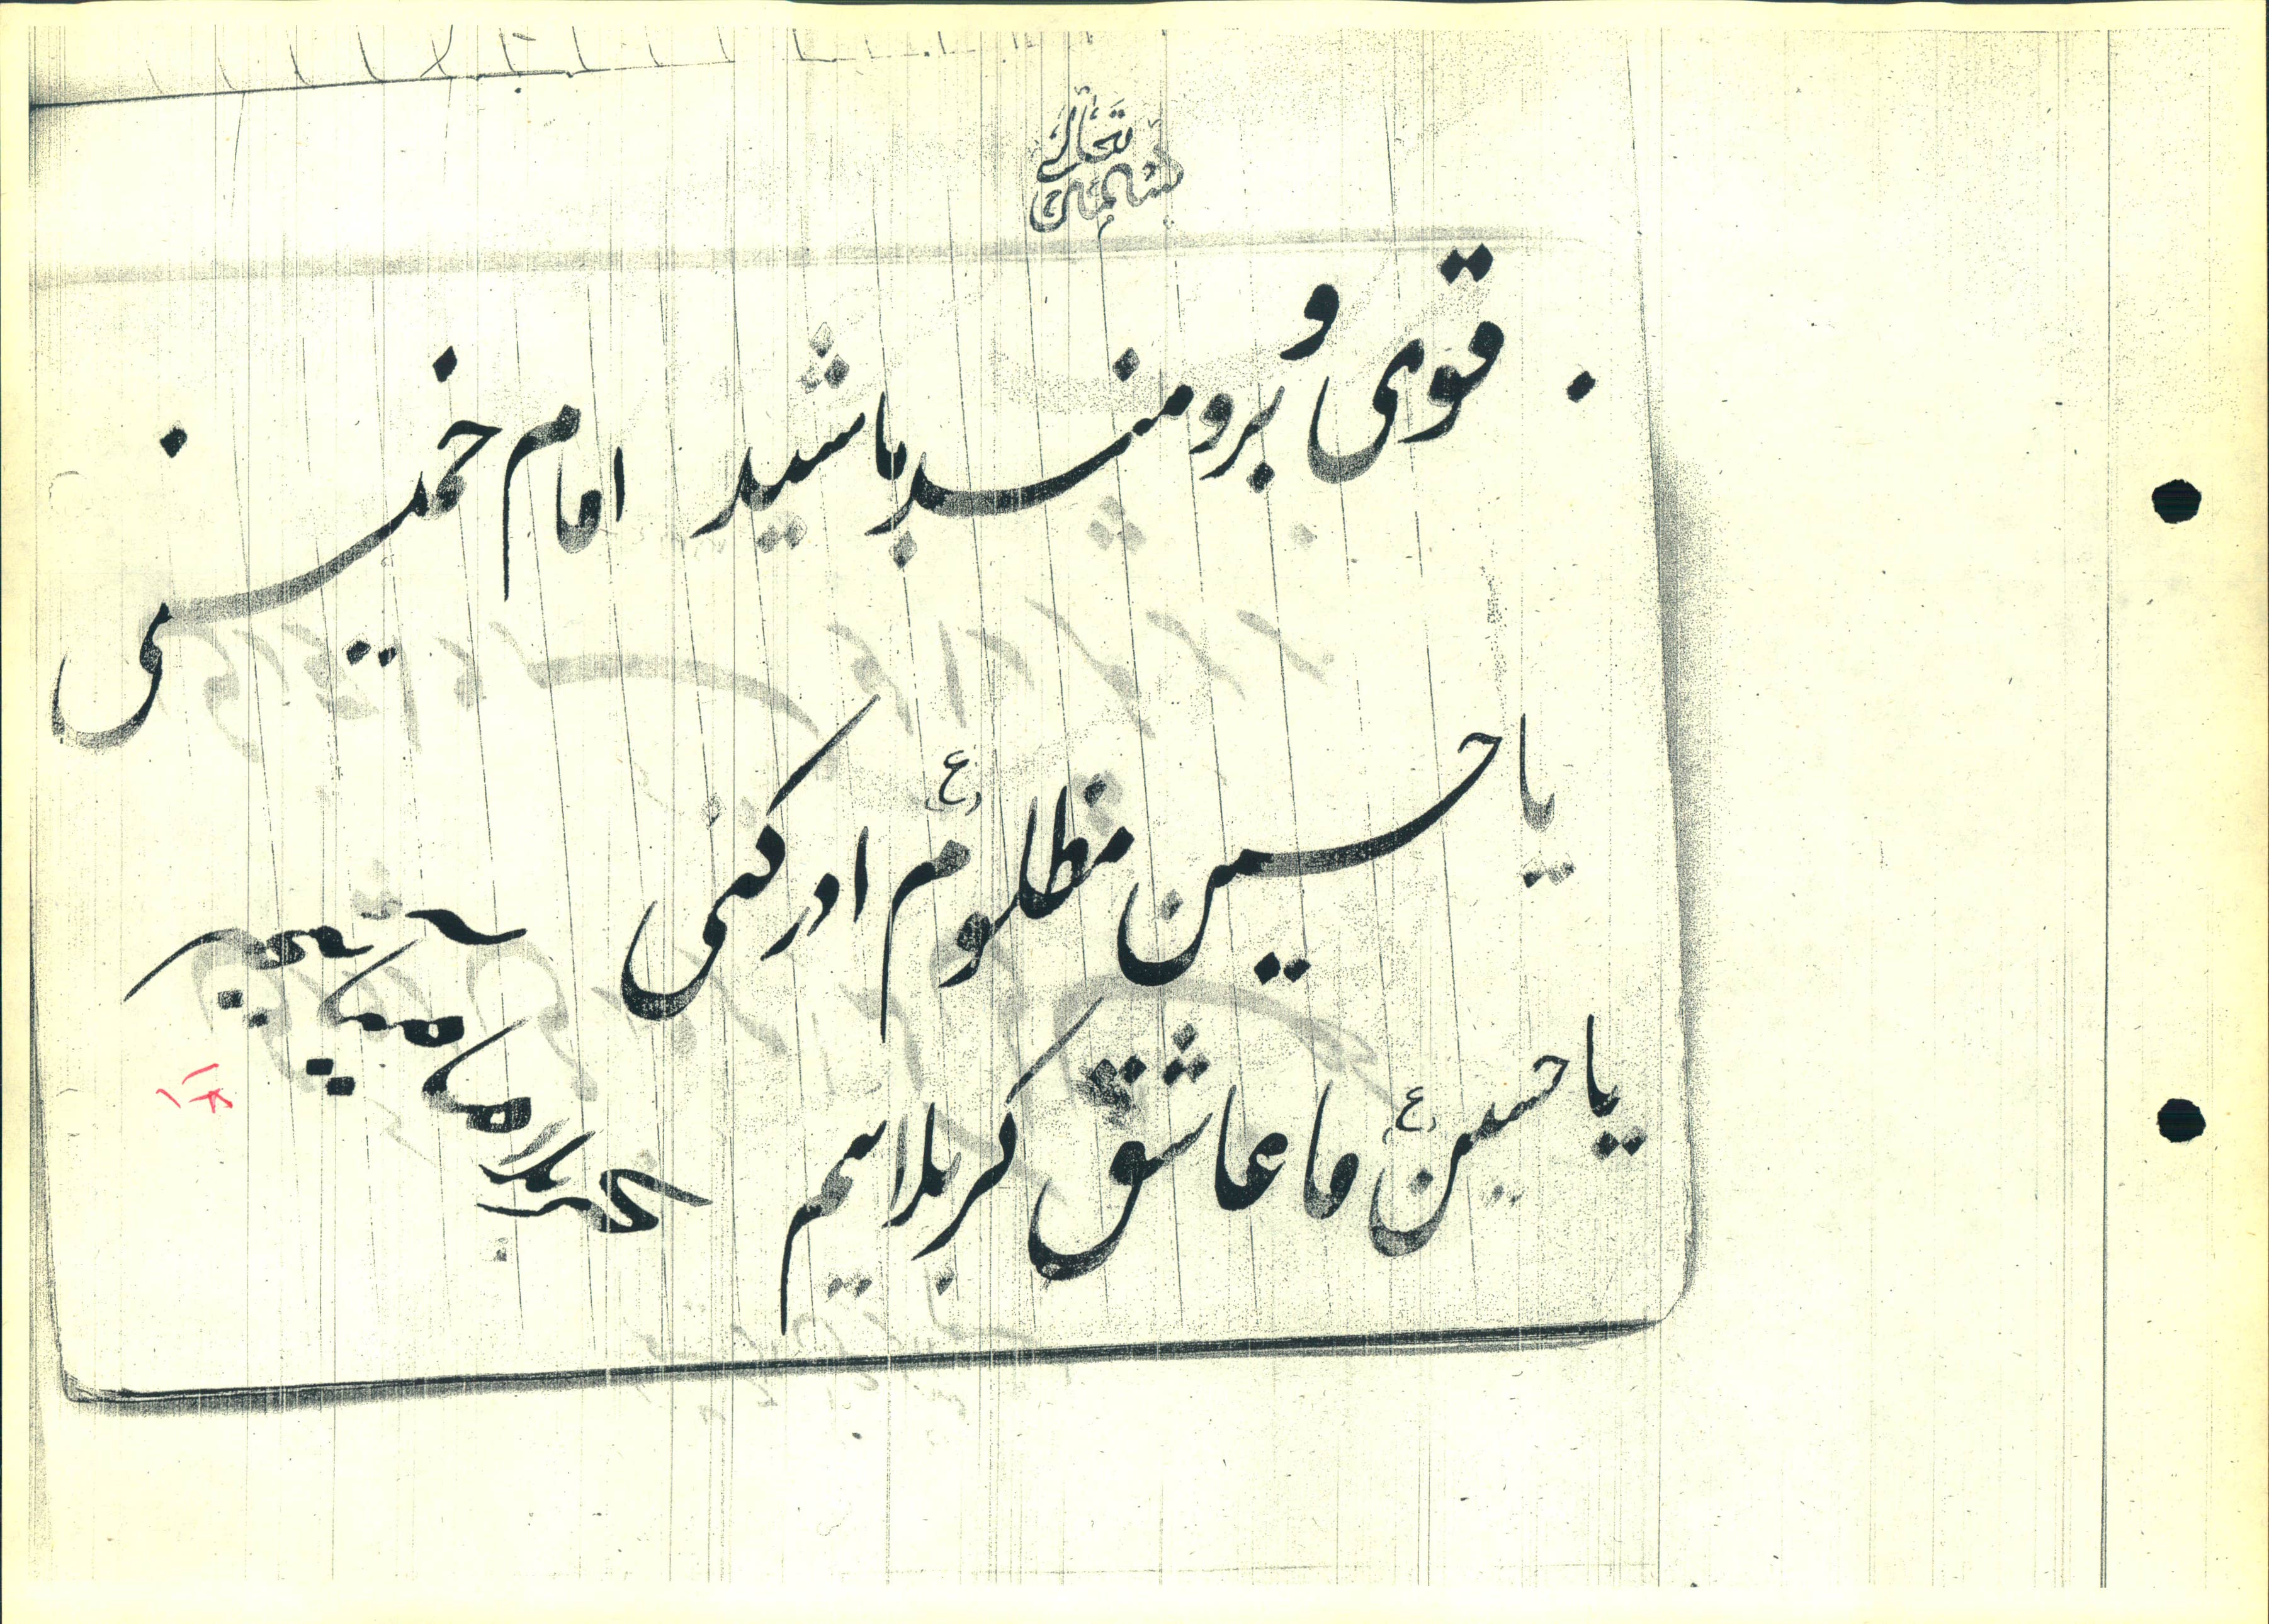 بسمه تعالی
قوی و برومند باشید امام خمینی
یا حسین مظلوم (ع) ادرکنی
یا حسین (ع) ما عاشق کربلاییم